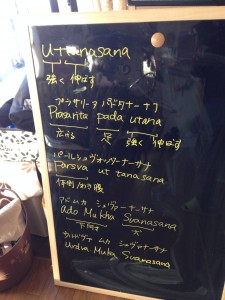 uttanasana
強く 伸ばす
プラサリータ パドタナーサナ
Prasarita pada utana
広げる 足 強く 伸ばす
パールシュヴォッタナーサナ
Parsva ut tanasana
体側
アドームカ シュヴァナーサナ
Ado Mukha Svanasana
下向き 犬
ウルドヴァ ムカ シュヴァナーサナ
Urdva Muka Svanasana